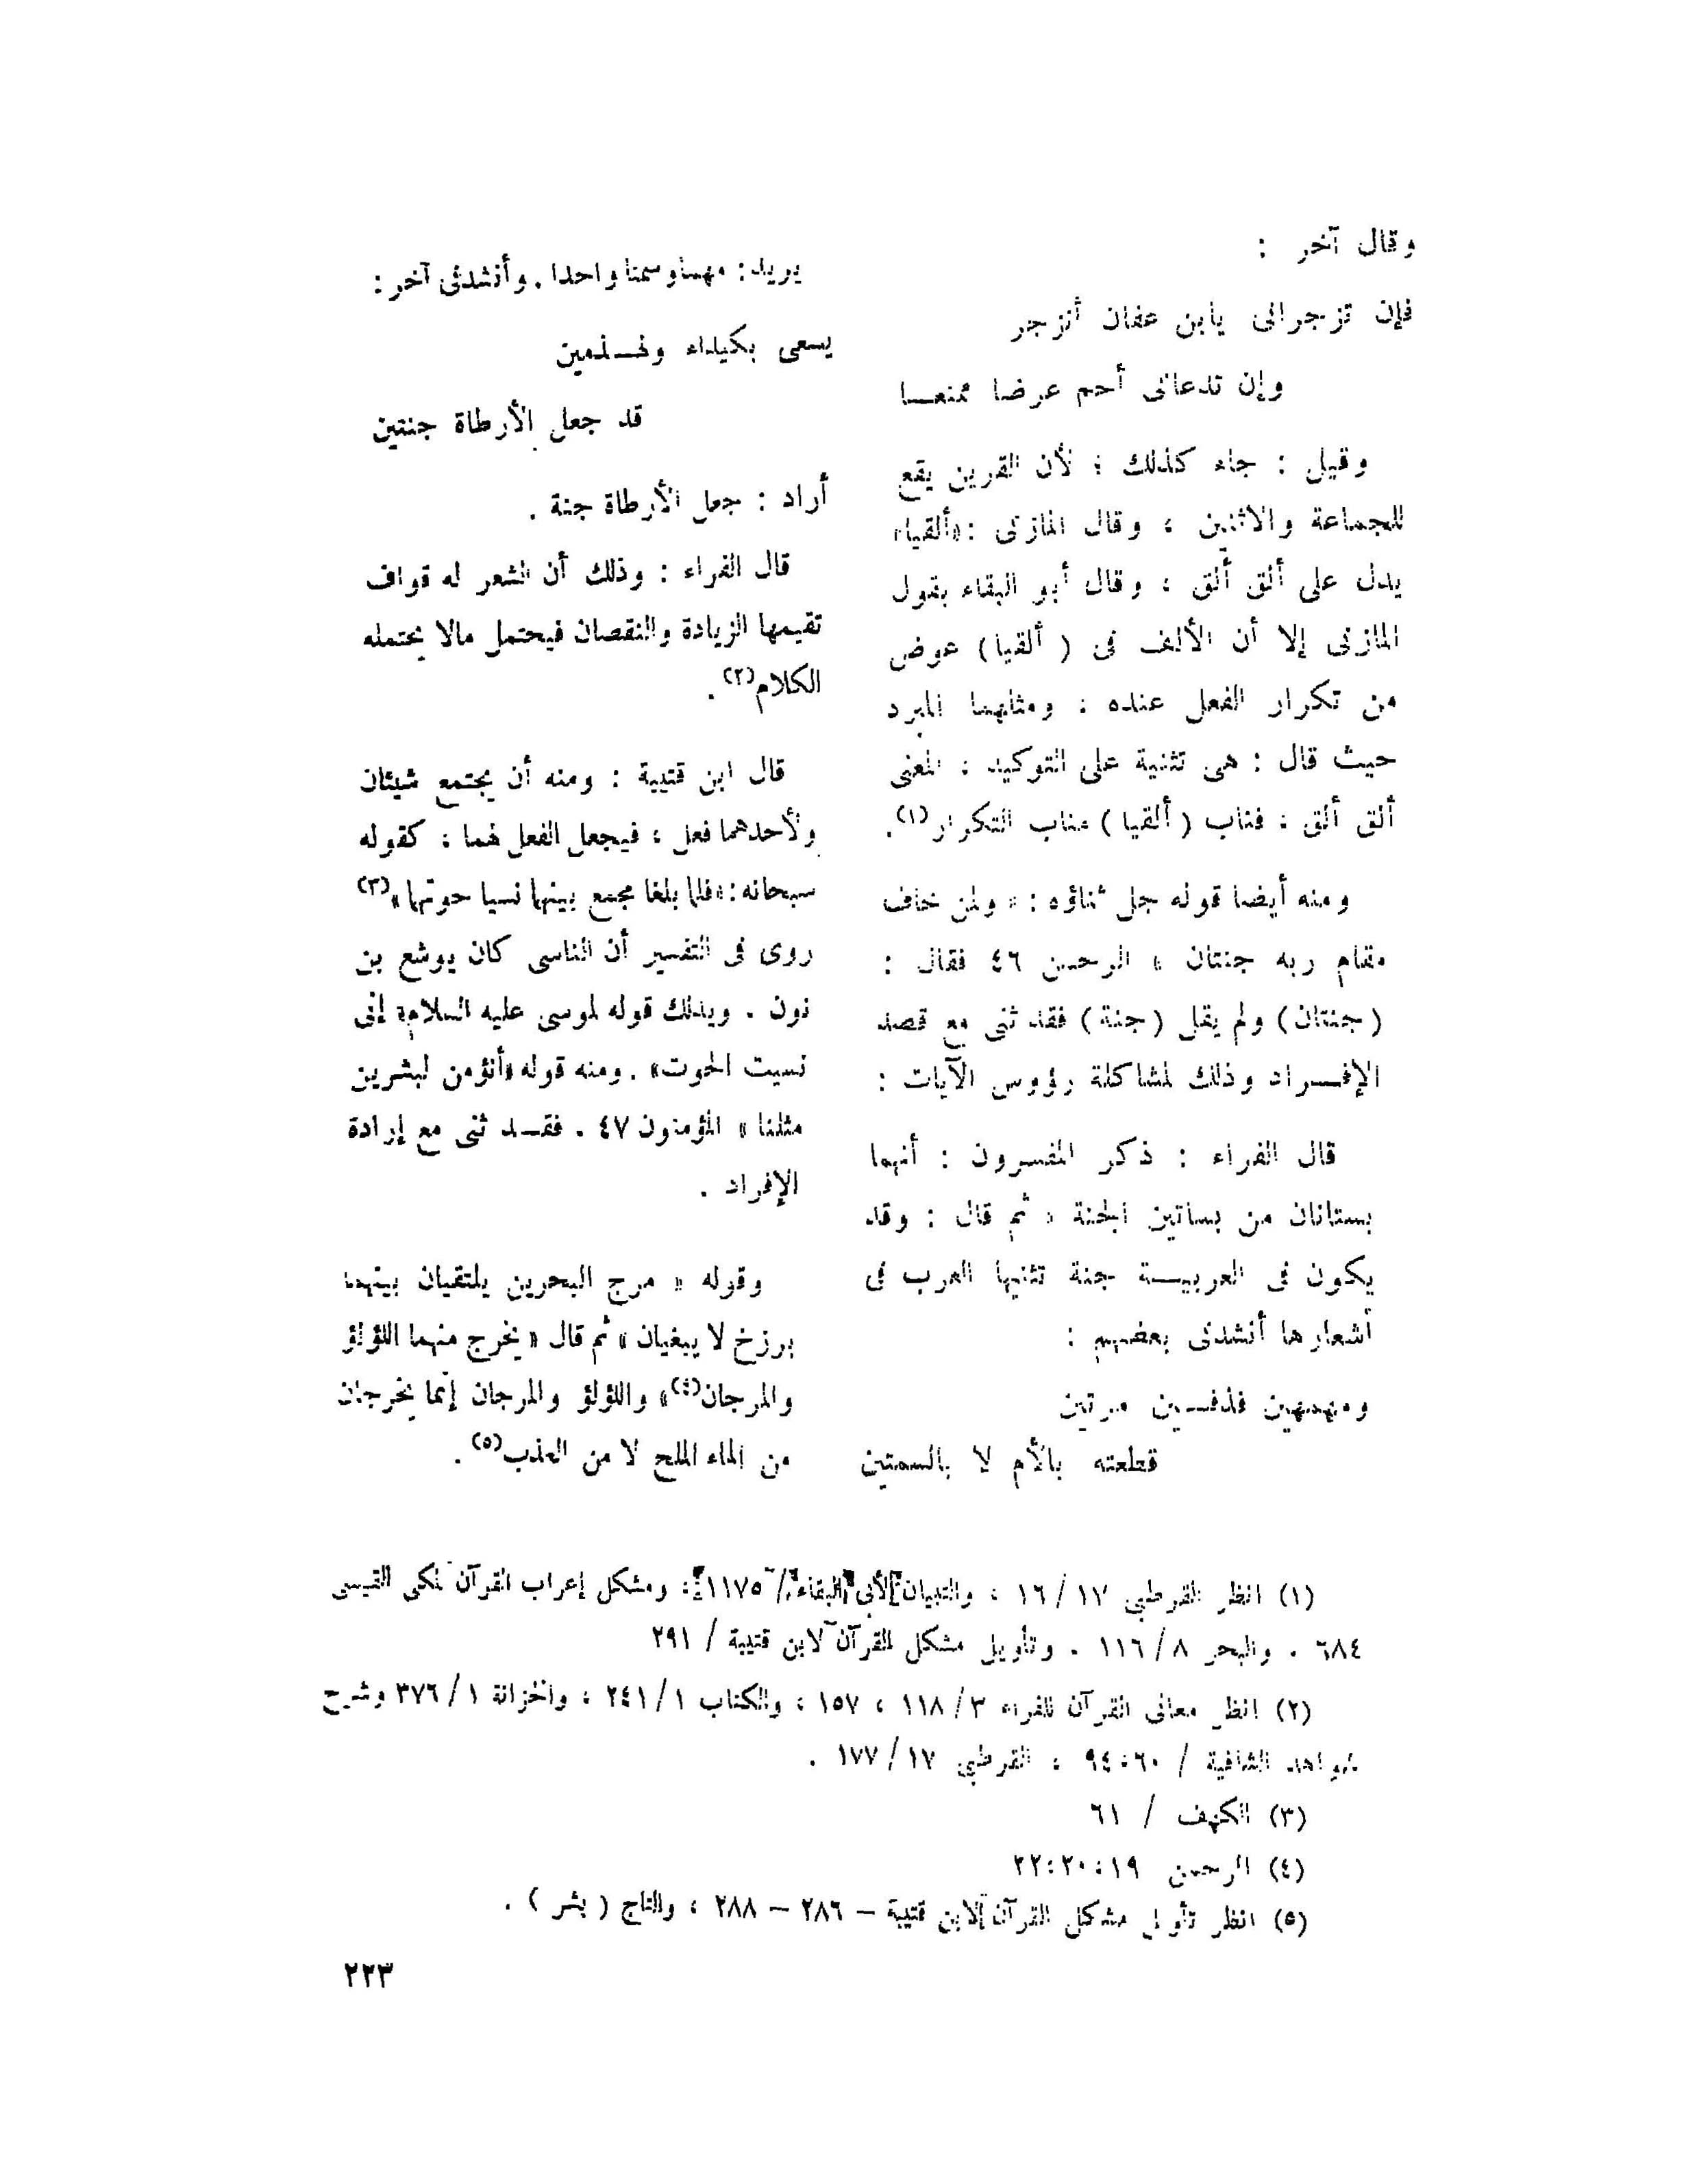 وقال آخر :
فإن تزجرانى يابن عفان أنزجر
وإن تدعانى أحم عرضا ممنعــا
وقيل : جاء كذلك ؛ لأن القرين يقع
للجماعة والاثنين ، وقال المازنى : «ألقيا»
يدل على ألق ألق ، وقال أبو البقاء بقول
المازنى إلا أن الألف فى ( ألقيا ) عوض
من تكرار الفعل عنده ، ومثلهما المبرد
حيث قال : هى تثنية على التوكيد ، المعنى
ألق ألق ، فناب ( ألقيا ) مناب التكرار(١).
ومنه أيضا قوله جل ثناؤه : « ولمن خاف
مقام ربه جنتان » الرحمن ٤٦ فقال :
( جنتان ) ولم يقل ( جنة ) فقد ثنى مع قصد
الإفــراد وذلك لمشاكلة رؤوس الآيات :
قال الفراء : ذكر المفسرون : أنهما
بستانان من بساتين الجنة ، ثم قال : وقد
يكون فى العربيــة جنة تثنيها العرب فى
أشعارها أنشدنى بعضهم :
ومهمهين قذفــين مرتين
قطعته بالأم لا بالسمتين
يريد : مهمها وسمتا واحدا . وأنشدنى آخر :
يسعى بكيداء ولهــذمين
قد جعل الأرطاة جنتين
أراد : جعل الأرطاة جنة .
قال الفراء : وذلك أن الشعر له قواف
تقيمها الزيادة والنقصان فيحتمل مالا يحتمله
الكلام(٢) .
قال ابن قتيبة : ومنه أن يجتمع شيئان
ولأحدهما فعل ، فيجعل الفعل لهما ، كقوله
سبحانه : «فلما بلغا مجمع بينهما نسيا حوتهما»(٣)
روى فى التفسير أن الناسى كان يوشع بن
نون . ويدلك قوله لموسى عليه السلام« إنى
نسيت الحوت» . ومنه قوله «أنؤمن لبشرين
مثلنا » المؤمنون ٤٧ . فقــد ثنى مع إرادة
الإفراد .
وقوله « مرج البحرين يلتقيان بينهما
برزخ لا يبغيان » ثم قال « يخرج منهما اللؤلؤ
والمرجان(٤)» واللؤلؤ والمرجان إنما يخرجان
من الماء الملح لا من العذب(٥) .
(١) انظر القرطبى ١٧ / ١٦ ، والتبيان لأبى البقاء / ١١٧٥ ، ومشكل إعراب القرآن لمكى القيسى
٦٨٤ . والبحر ٨ / ١١٦ . وتأويل مشكل القرآن لابن قتيبة / ٢٩١
(٢) انظر معانى القرآن للفراء ٣ / ١١٨ ، ١٥٧ ، والكتاب ١ / ٢٤١ ، والخزانة ١ / ٣٧٦ وشرح
شواهد الشافية / ٩٤،٦٠ ، القرطبى ١٧ / ١٧٧ .
(٣) الكهف / ٦١
(٤) الرحمن ٢٢،٢٠،١٩
(٥) انظر تأويل مشكل القرآن لابن قتيبة – ٢٨٦ – ٢٨٨ ، والتاج ( بشر ) .
٢٢٣